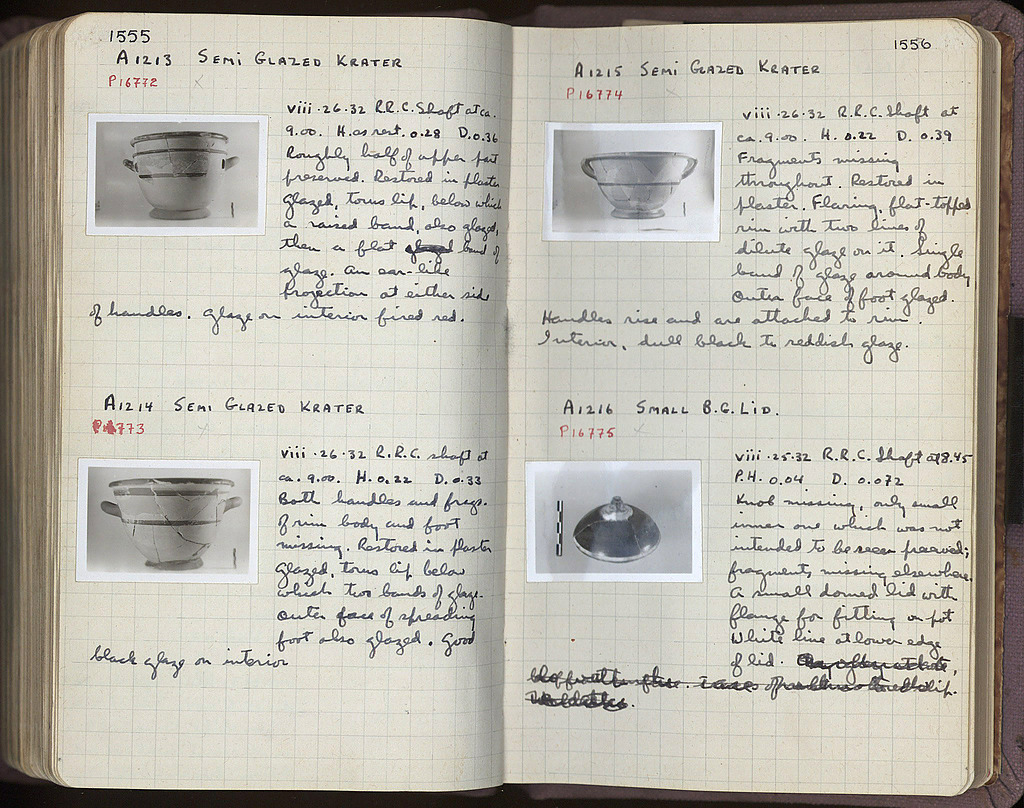 1555
A1213 SEMI GLAZED KRATER
P16772 X
viii.26.32 R.R.C. Shaft at ca.
9.00. H. as rest. 0.28 D. 0.36
Roughly half of upper part
preserved. Restored in plaster
Glazed, torus lip, below which
a raised band, also glazed,
then a flat band of
glaze. An ear-like
projection at either side
of handles. Glaze on interior fired red.
A1214 SEMI GLAZED KRATER
P16773 X
viii.26.32 R.R.C. shaft at
ca. 9.00. H. 0.22 D. 0.33
Both handles and frags.
of rim body and foot
missing. Restored in plaster
Glazed, torus lip below
which two bands of glaze.
Outer face of spreading
foot also glazed. Good
black glaze on interior
1556
A1215 SEMI GLAZED KRATER
P16774 X
viii.26.32 R.R.C. Shaft at
ca. 9.00. H. 0.22 D. 0.39
Fragments missing
throughout. Restored in
plaster. Flaring, flat-topped
rim with two lines of
dilute glaze on it. Single
band of glaze around body
Outer face of foot glazed.
Handles rise and are attached to rim.
Interior, dull black to reddish glaze.
A1216 SMALL B.G. LID.
P16775 X
viii.25.32 R.R.C. Shaft at 8.45
P.H. 0.04 D. 0.072
Knob missing, only small
inner one which was not
intended to be seen preserved;
fragments missing elsewhere.
A small domed lid with
flange for fitting on pot
White line at lower edge
of lid.